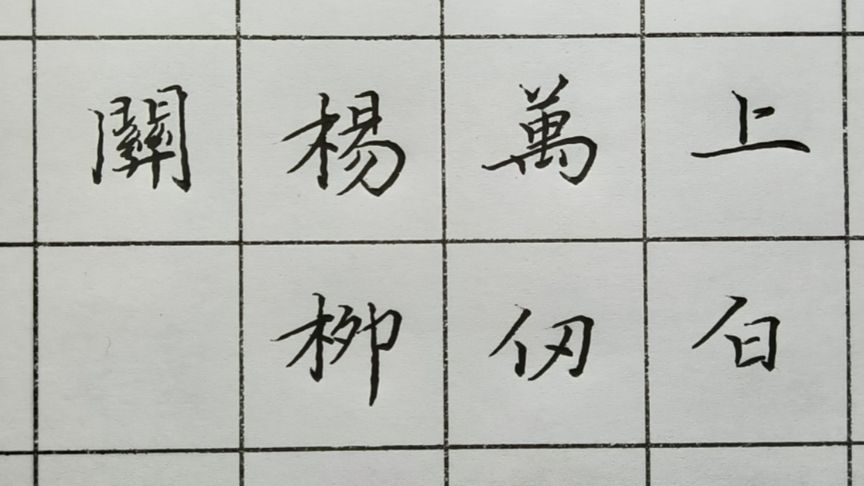 上白
萬仞
楊柳
關